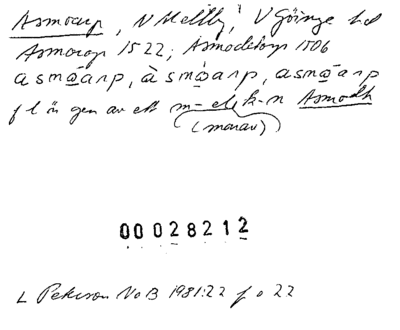 Asmoarp, N Mellby, V Göinge hd
Asmorop 1522; Asmodetorp 1506
asmòarp, àsmòarp, asmòarp
gen av ett m- el. k-n Asmodh
(manav)
00028212
L Peterson NoB 1981:22 f o 22